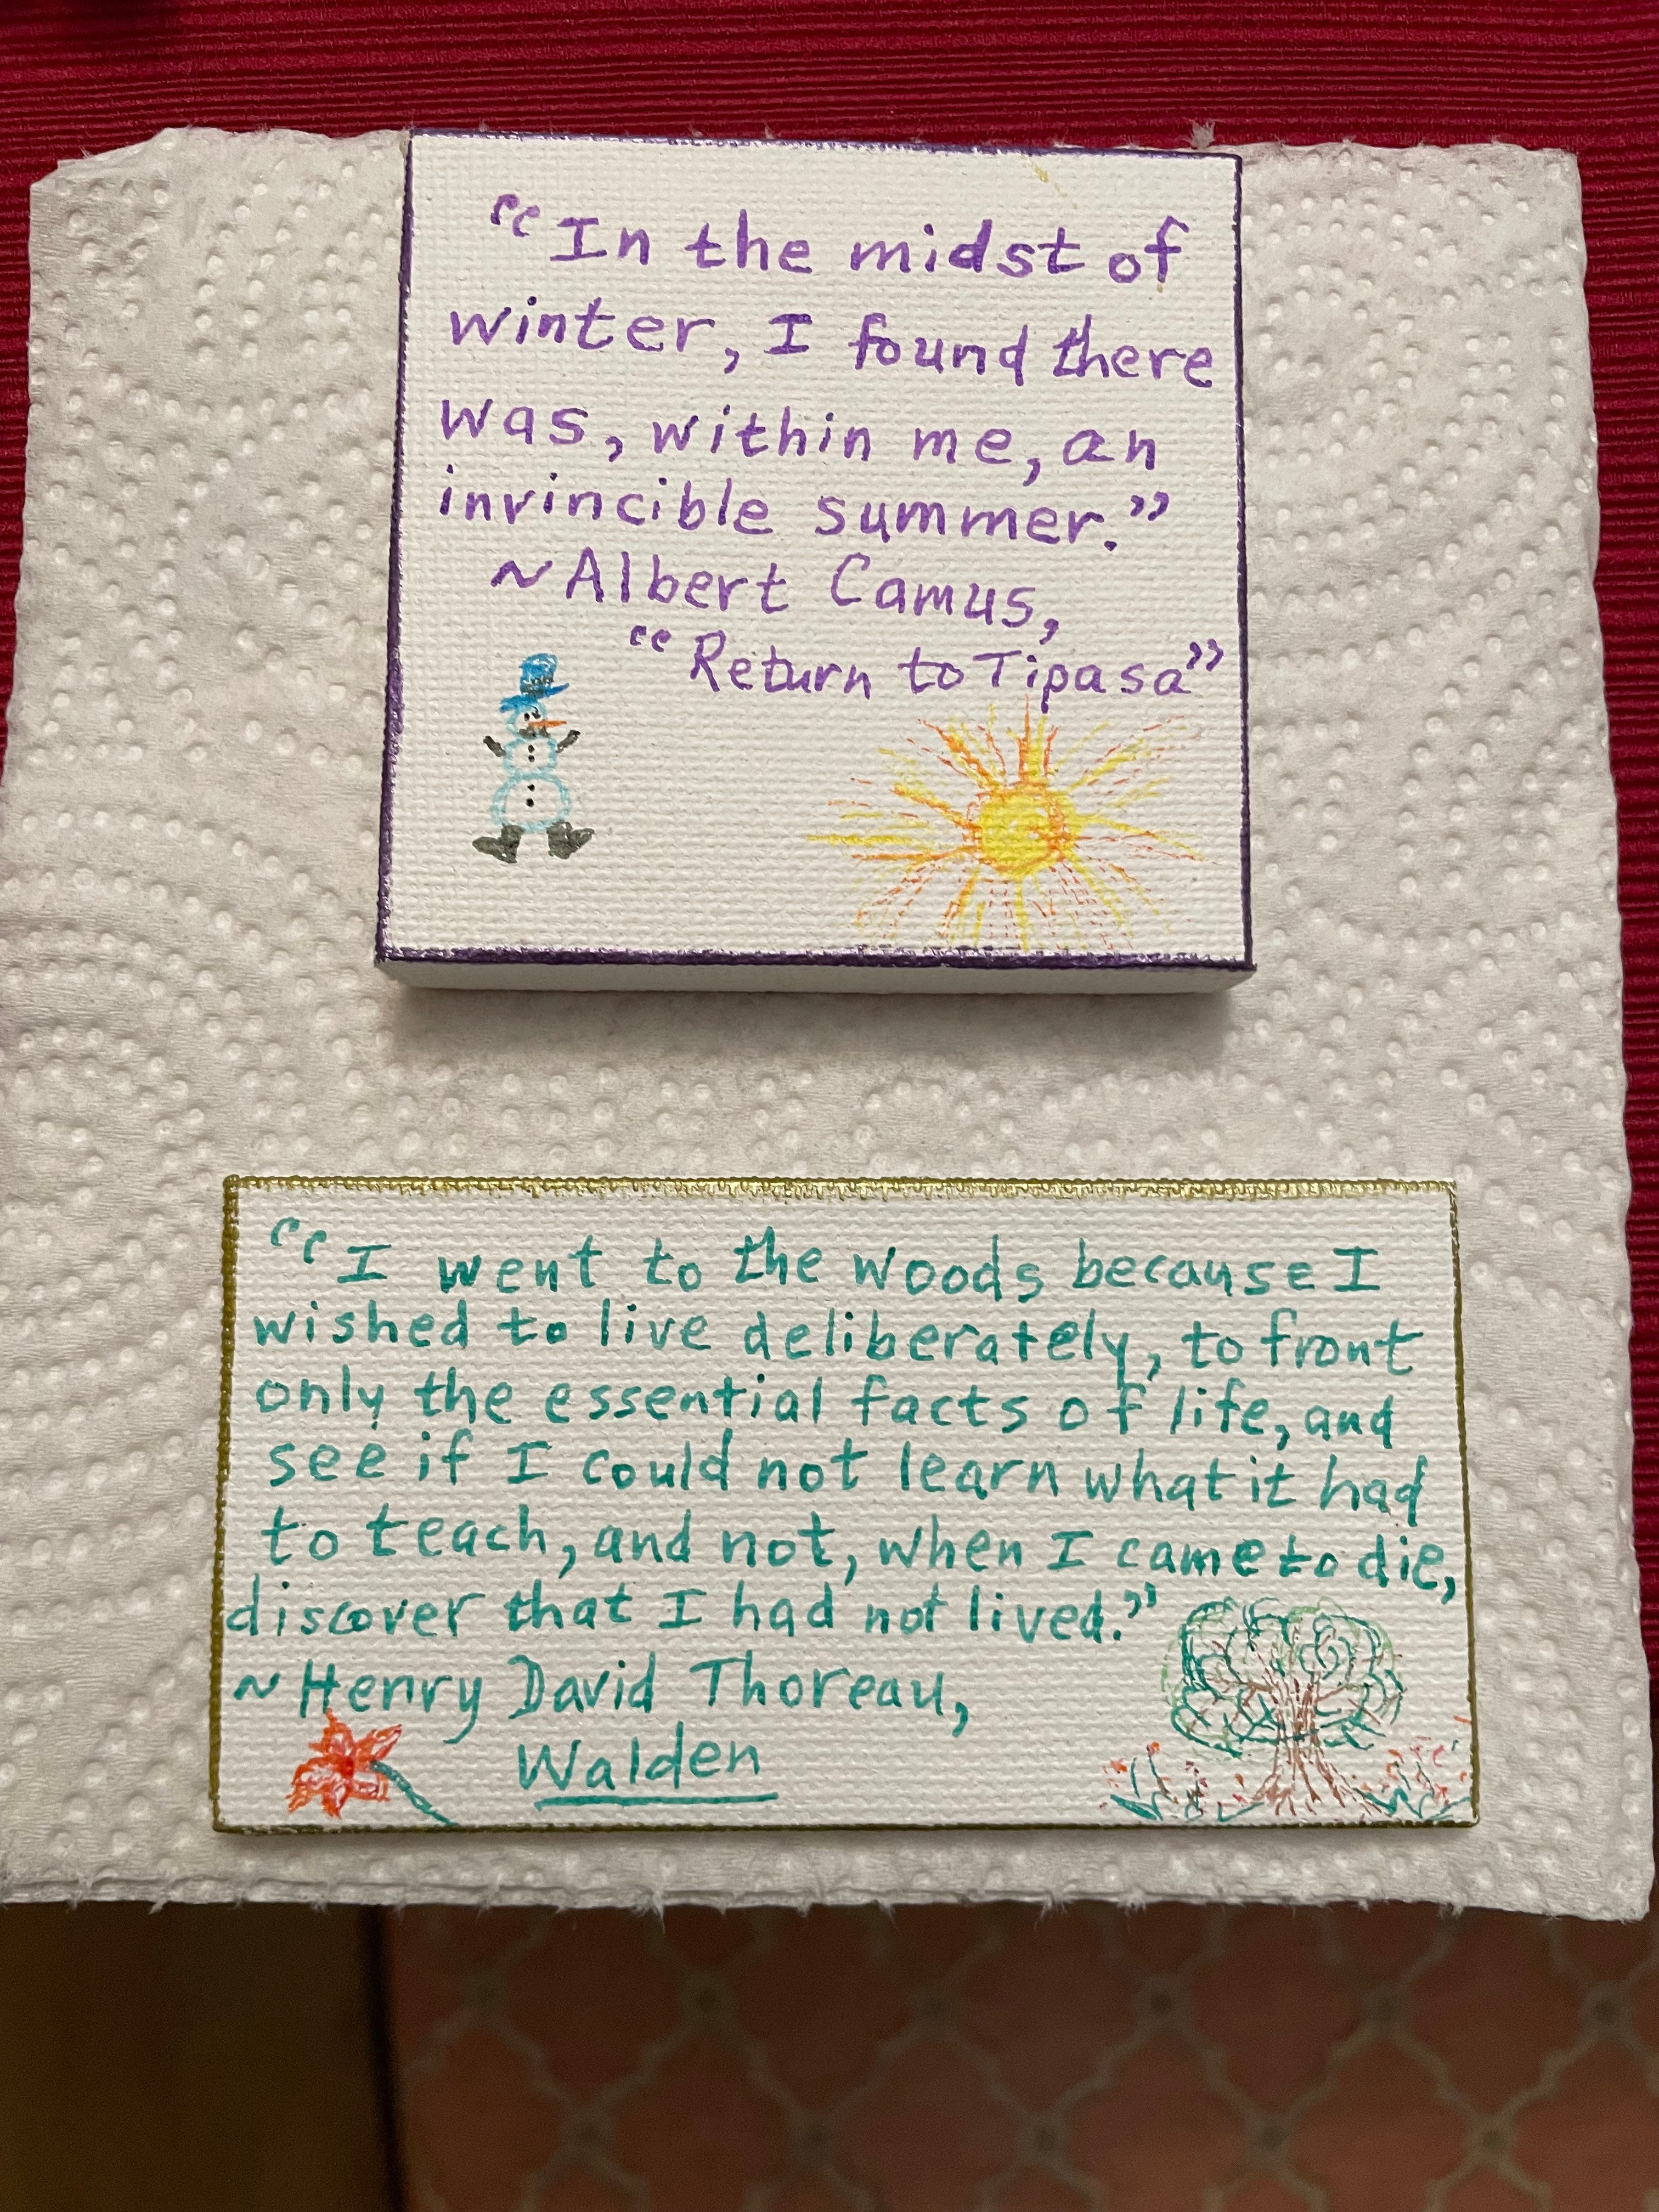 “In the midst of
winter, I found there
was, within me, an
invincible summer.”
~Albert Camus,
“Return to Tipasa”
“I went to the woods because I
wished to live deliberately, to front
only the essential facts of life, and
see if I could not learn what it had
to teach, and not, when I came to die,
discover that I had not lived.”
~Henry David Thoreau,
Walden